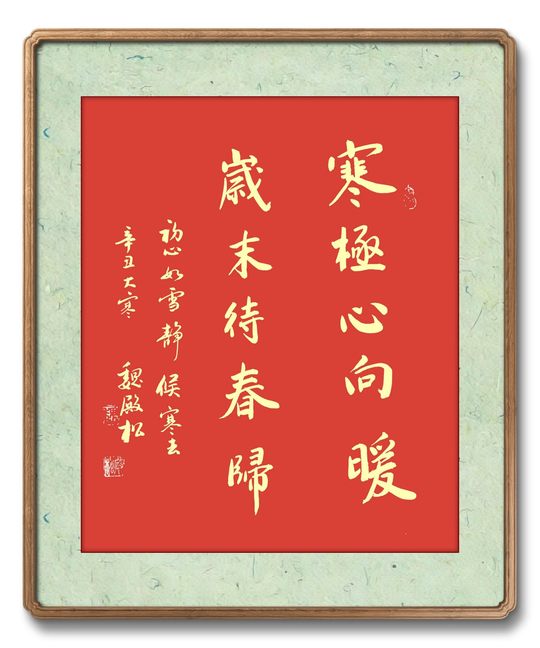 寒極心向暖
歲末待春歸
初心如雪静 候寒去
辛丑大寒 魏殿松